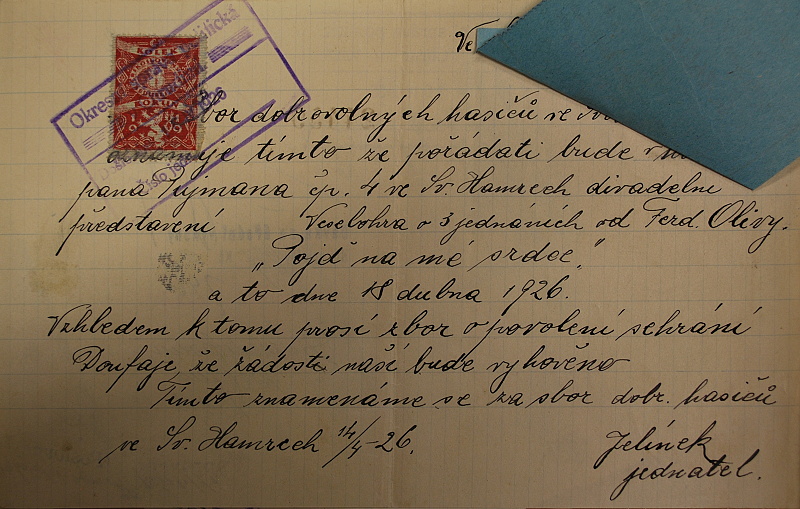 Ve
KOLEK
KORUN
Okres
1926
Číslo
sbor dobrovolných hasičů ve
oznamuje tímto že pořádati bude v
pana čp. 4 ve Sv. Hamrech divadelní
představení Veselohra o 3 jednáních od Ferd. Olivy.
„Pojď na mé srdce“
a to dne 18 dubna 1926.
Vzhledem k tomu prosí zbor o povolení sehrání
Doufaje, že žádosti naší bude vyhověno
Tímto znamenáme se za sbor dobr. hasičů
ve Sv. Hamrech 14/4-26.
Jelínek
jednatel.